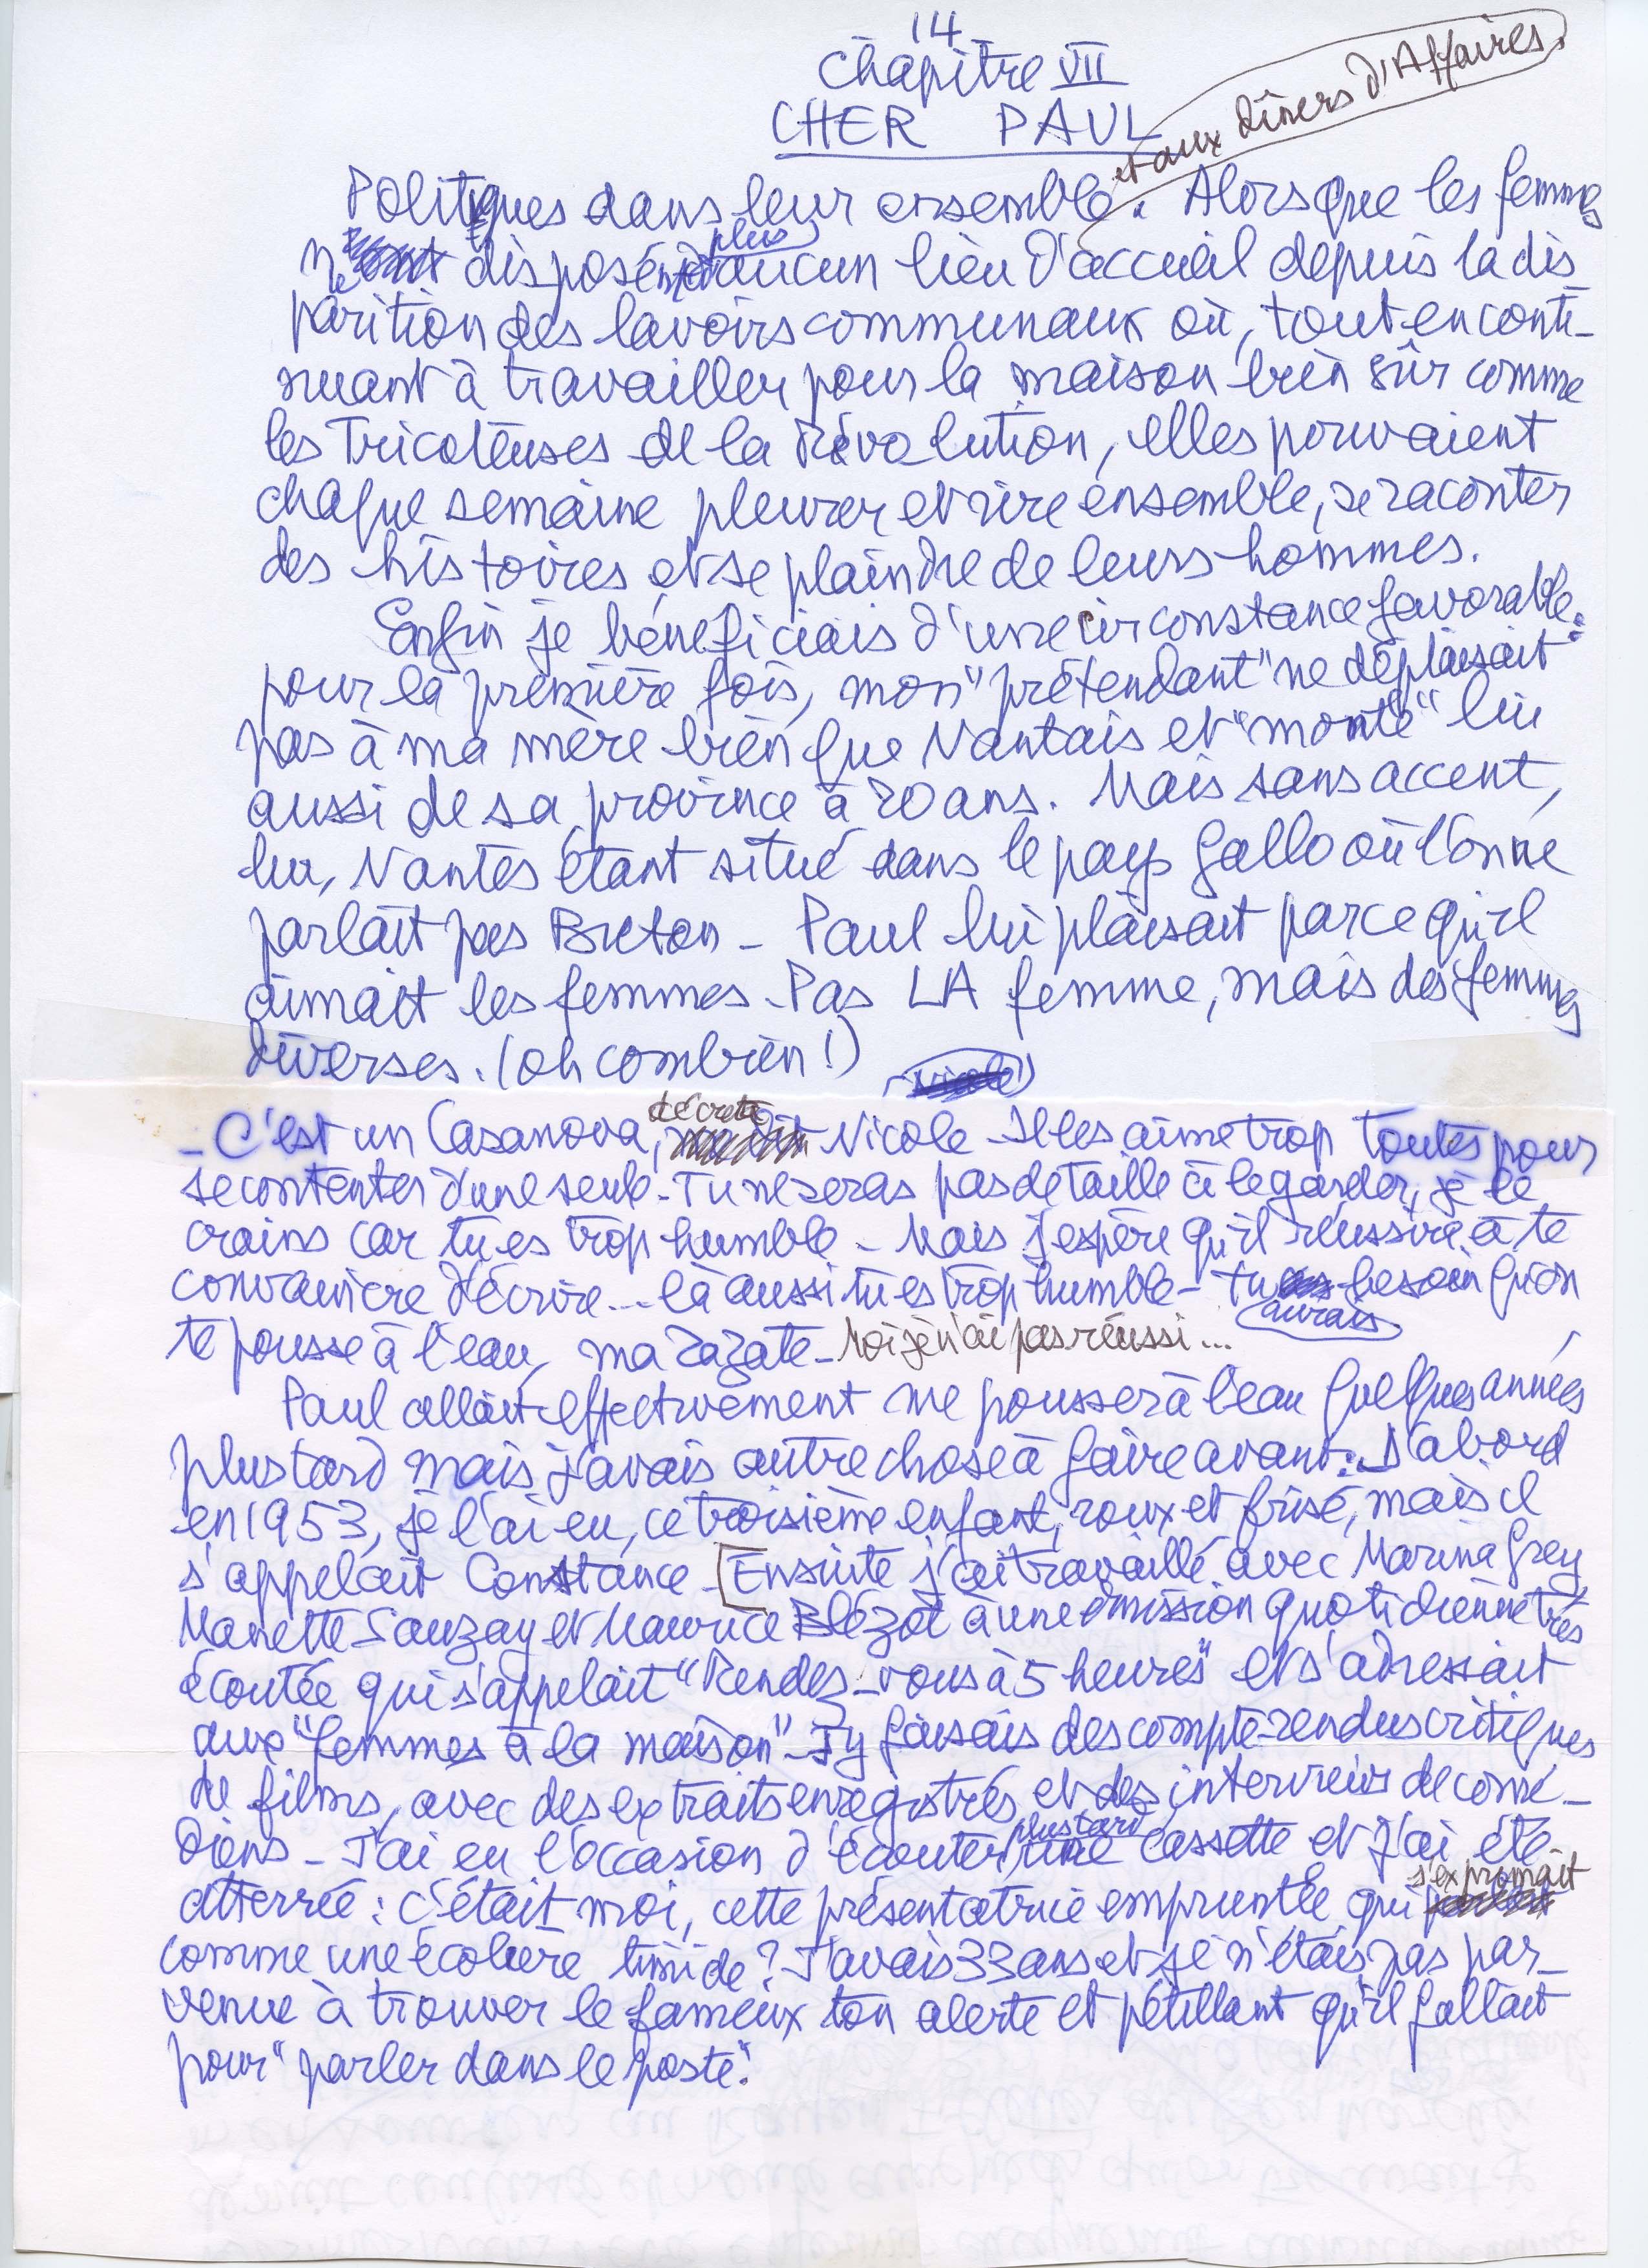 14
Chapitre VII
CHER PAUL
et aux dîners d'Affaires.
Politiques dans leur ensemble. Alors que les femmes
ne disposent plus d'aucun lieu d'accueil depuis la dis
parition des lavoirs communaux où, tout en conti-
nuant à travailler pour la maison bien sûr comme
les Tricoteuses de la Révolution, elles pouvaient
chaque semaine pleurer et rire ensemble, se raconter
des histoires et se plaindre de leurs hommes.
Enfin je bénéficiais d'une circonstance favorable:
pour la première fois, mon "prétendant" ne déplaisait
pas à ma mère bien que Nantais et "monté" lui
aussi de sa province à 20 ans. Mais sans accent,
lui, Nantes étant situé dans le pays gallo où l'on ne
parlait pas Breton - Paul lui plaisait parce qu'il
aimait les femmes. Pas LA femme, mais des femmes
diverses. (oh combien!)
- C'est un Casanova, décréta Nicole - Il les aime trop toutes pour
se contenter d'une seule. Tu ne seras pas de taille à le garder, je le
crains car tu es trop humble - Mais j'espère qu'il réussira à te
convaincre d'écrire... là aussi tu es trop humble - tu aurais besoin qu'on
te pousse à l'eau, ma Zazate - Moi je n'ai pas réussi...
Paul allait effectivement me pousser à l'eau quelques années
plus tard mais j'avais autre chose à faire avant: D'abord
en 1953, je l'ai eu, ce troisième enfant, roux et frisé, mais il
s'appelait Constance - [Ensuite j'ai travaillé avec Marina Grey
Manette Sauzay et Maurice Blézot à une émission quotidienne très
écoutée qui s'appelait "Rendez-vous à 5 heures" et s'adressait
aux "femmes à la maison" - J'y faisais des compte-rendus critiques
de films, avec des extraits enregistrés et des interviews de comé-
diens - J'ai eu l'occasion d'écouter plus tard une cassette et j'ai été
atterrée : c'était moi, cette présentatrice empruntée qui s'exprimait
comme une écolière timide? J'avais 33 ans et je n'étais pas par-
venue à trouver le fameux ton alerte et pétillant qu'il fallait
pour "parler dans le poste".